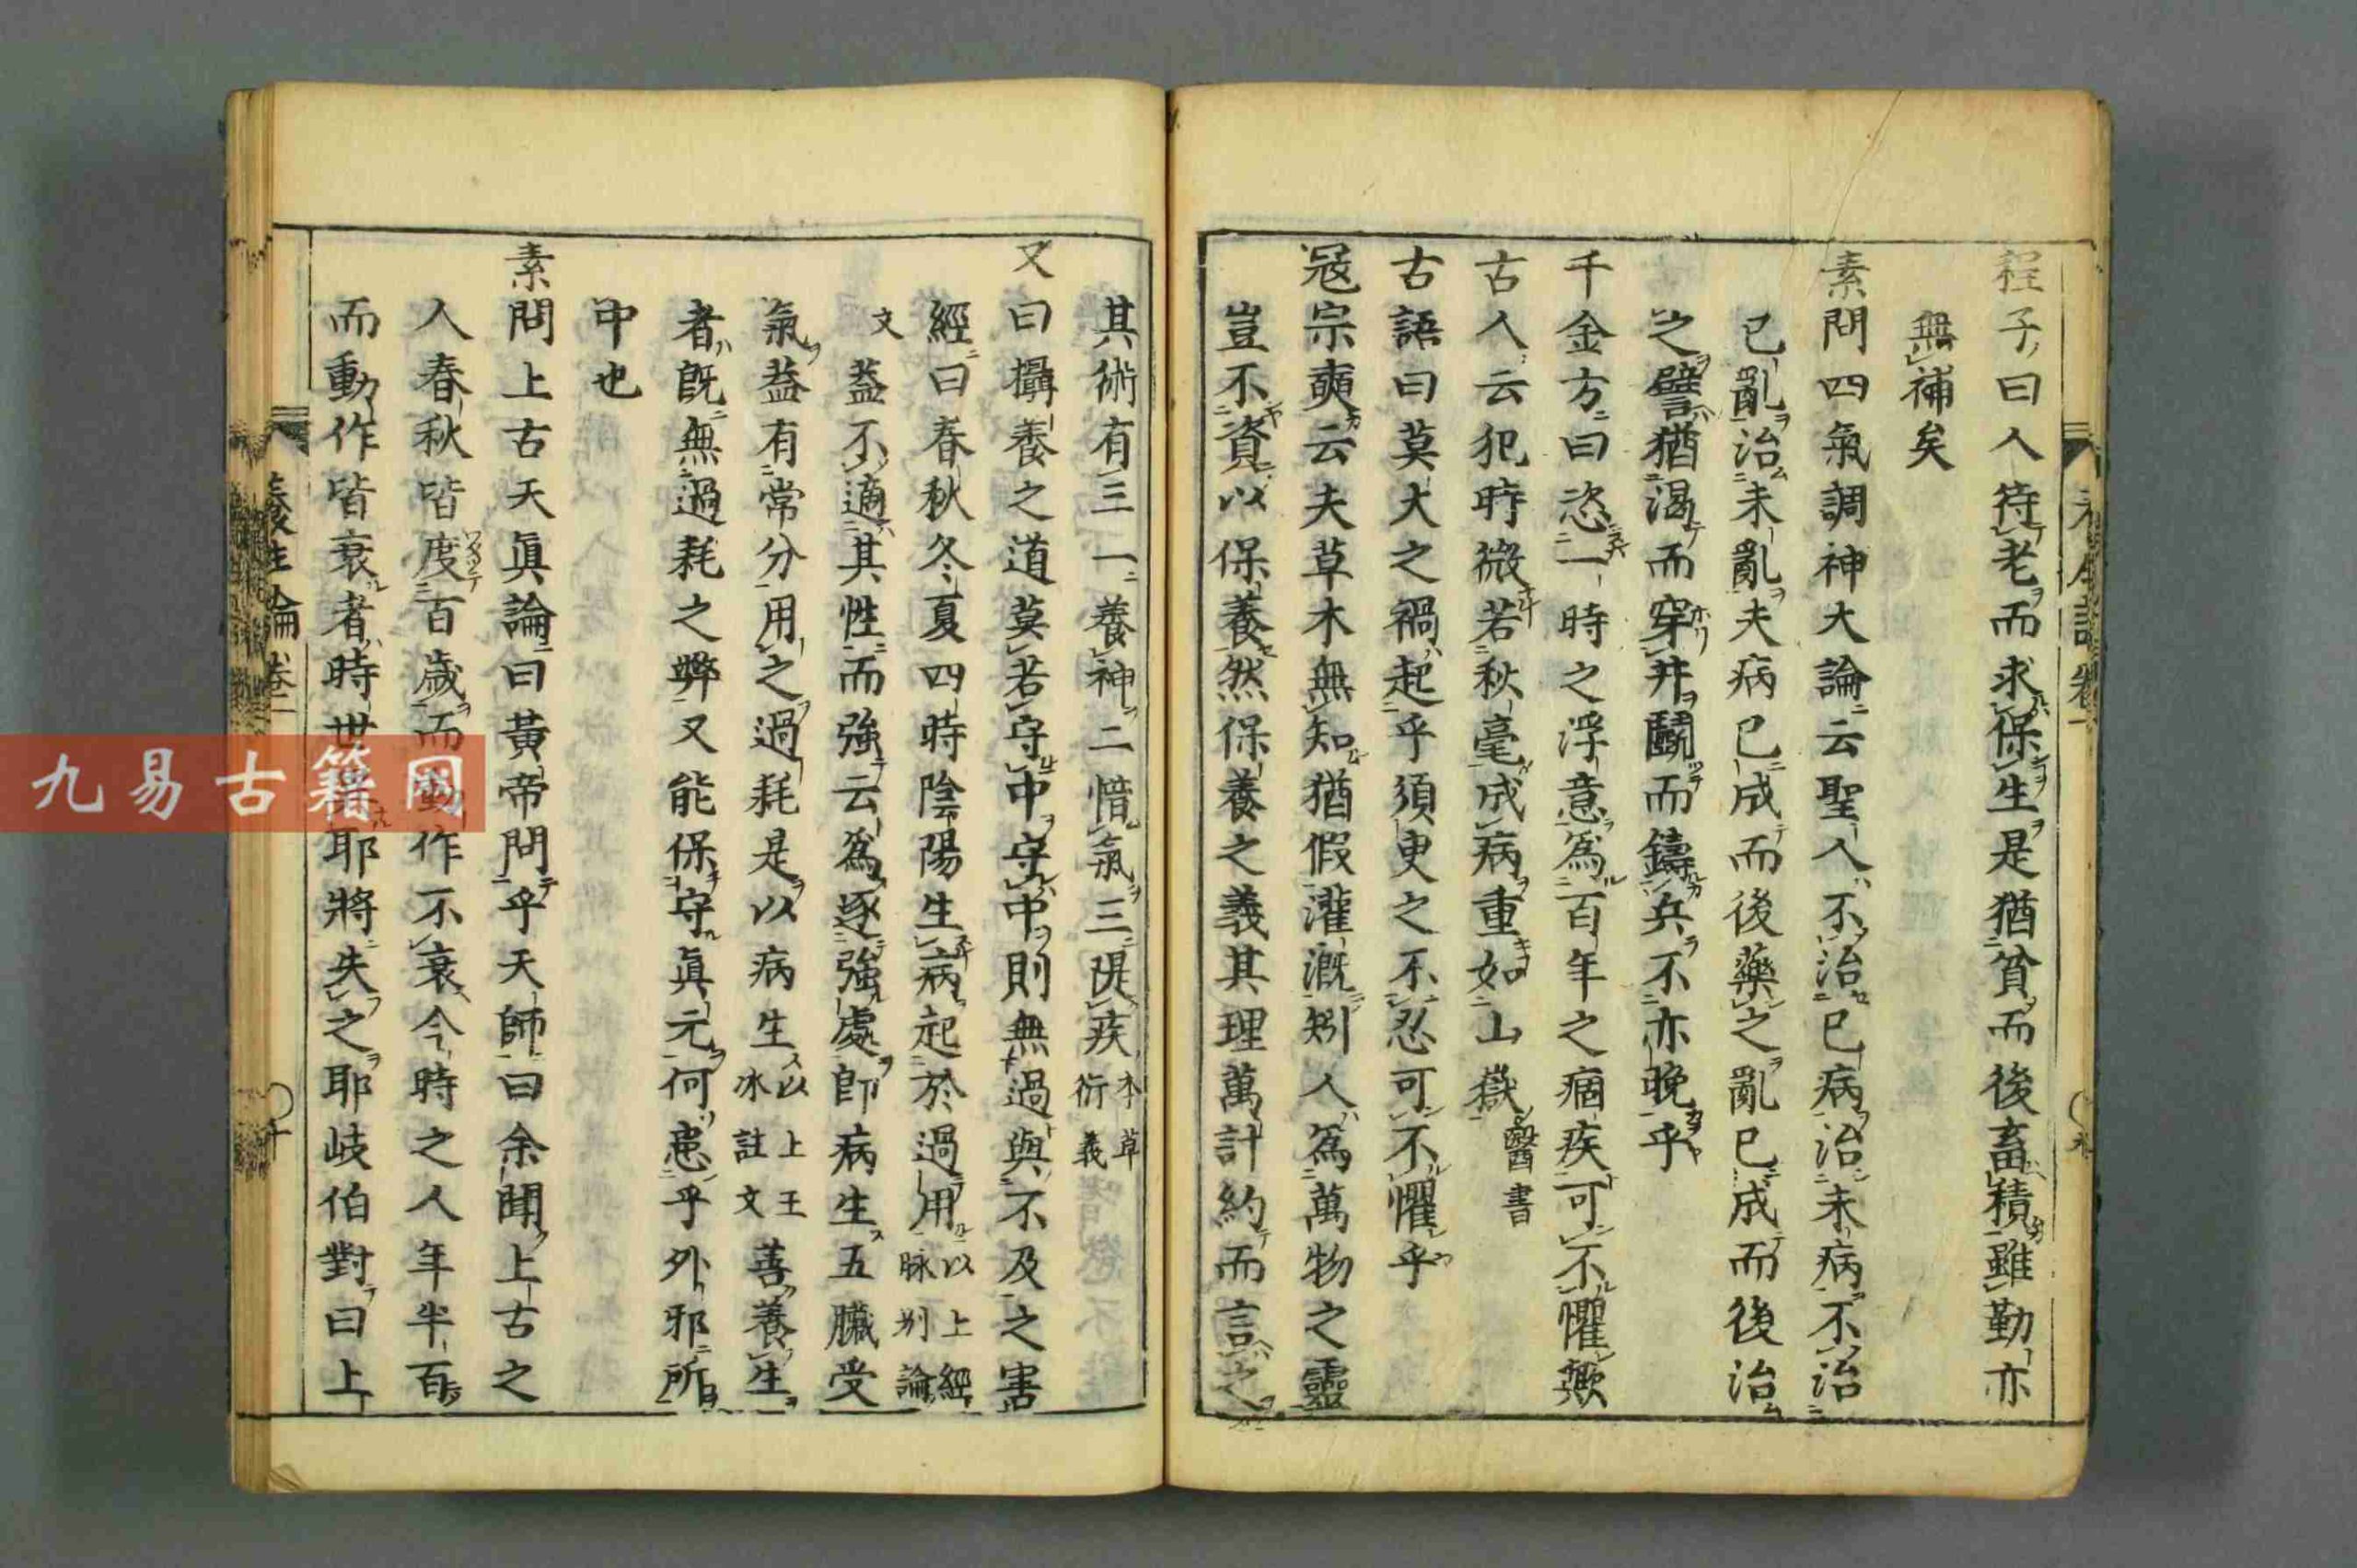 程子曰人待老而求保生是猶貧而後畜積雖勤亦
無補矣
素問四氣調神大論云聖人不治已病治未病不治
已亂治未亂夫病已成而後藥之亂已成而後治
之譬猶渴而穿井鬭而鑄兵不亦晚乎
千金方曰恣一時之浮意為百年之痼疾可不懼歟
古人云犯時微若秋毫成病重如山嶽醫書
古語曰莫大之禍起乎須臾之不忍可不懼乎
冦宗奭云夫草木無知猶假灌溉矧人為萬物之靈
豈不資以保養然保養之義其理萬計約而言之
其術有三一養神二惜氣三隄疾本草衍義
又曰攝養之道莫若守中守中則無過與不及之害
經曰春秋冬夏四時陰陽生病起於過用以上經脉別論
文蓋不適其性而強云為逐強處即病生五臟受
氣蓋有常分用之過耗是以病生以上王冰註文善養生
者既無過耗之弊又能保守真元何患乎外邪所
中也
素問上古天真論曰黃帝問乎天師曰余聞上古之
人春秋皆度百歲而動作不衰今時之人年半百
而動作皆衰者時世異耶將失之耶岐伯對曰上
養生論 卷二
十
九易古籍网